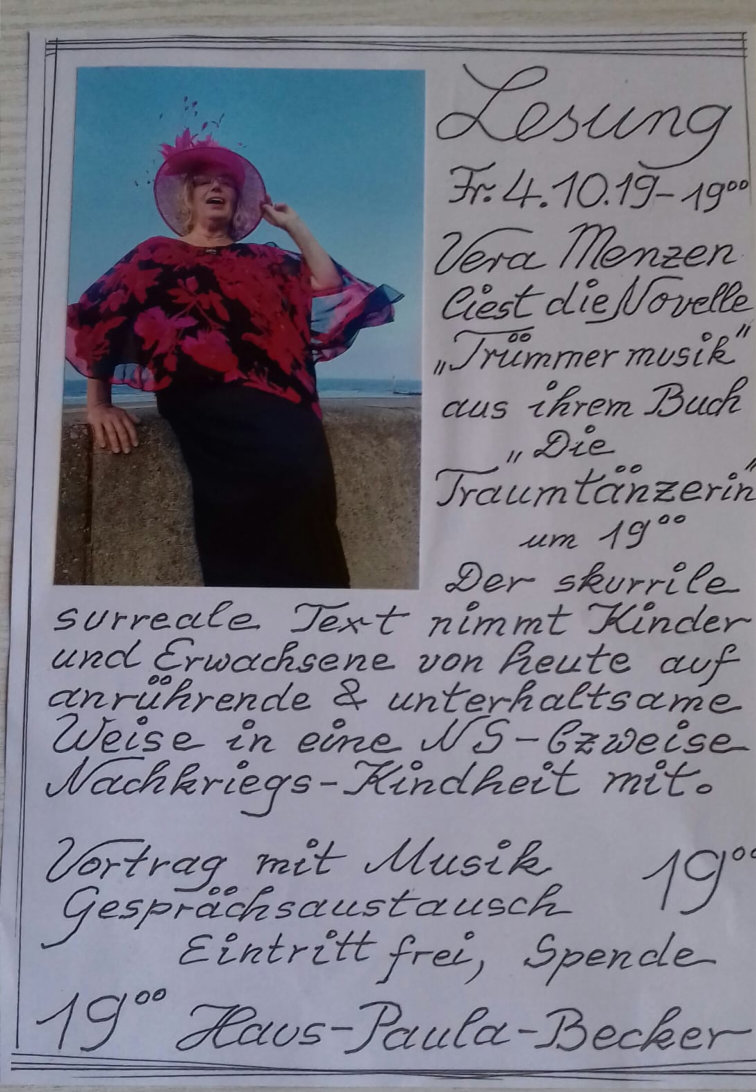 Lesung
Fr. 4.10.19 - 19⁰⁰
Vera Menzen
liest die Novelle
„Trümmermusik"
aus ihrem Buch
„Die
Traumtänzerin"
um 19⁰⁰
Der skurrile
surreale Text nimmt Kinder
und Erwachsene von heute auf
anrührende & unterhaltsame
Weise in eine NS-bzweise
Nachkriegs-Kindheit mit.
Vortrag mit Musik 19⁰⁰
Gesprächsaustausch
Eintritt frei, Spende
19⁰⁰ Haus-Paula-Becker